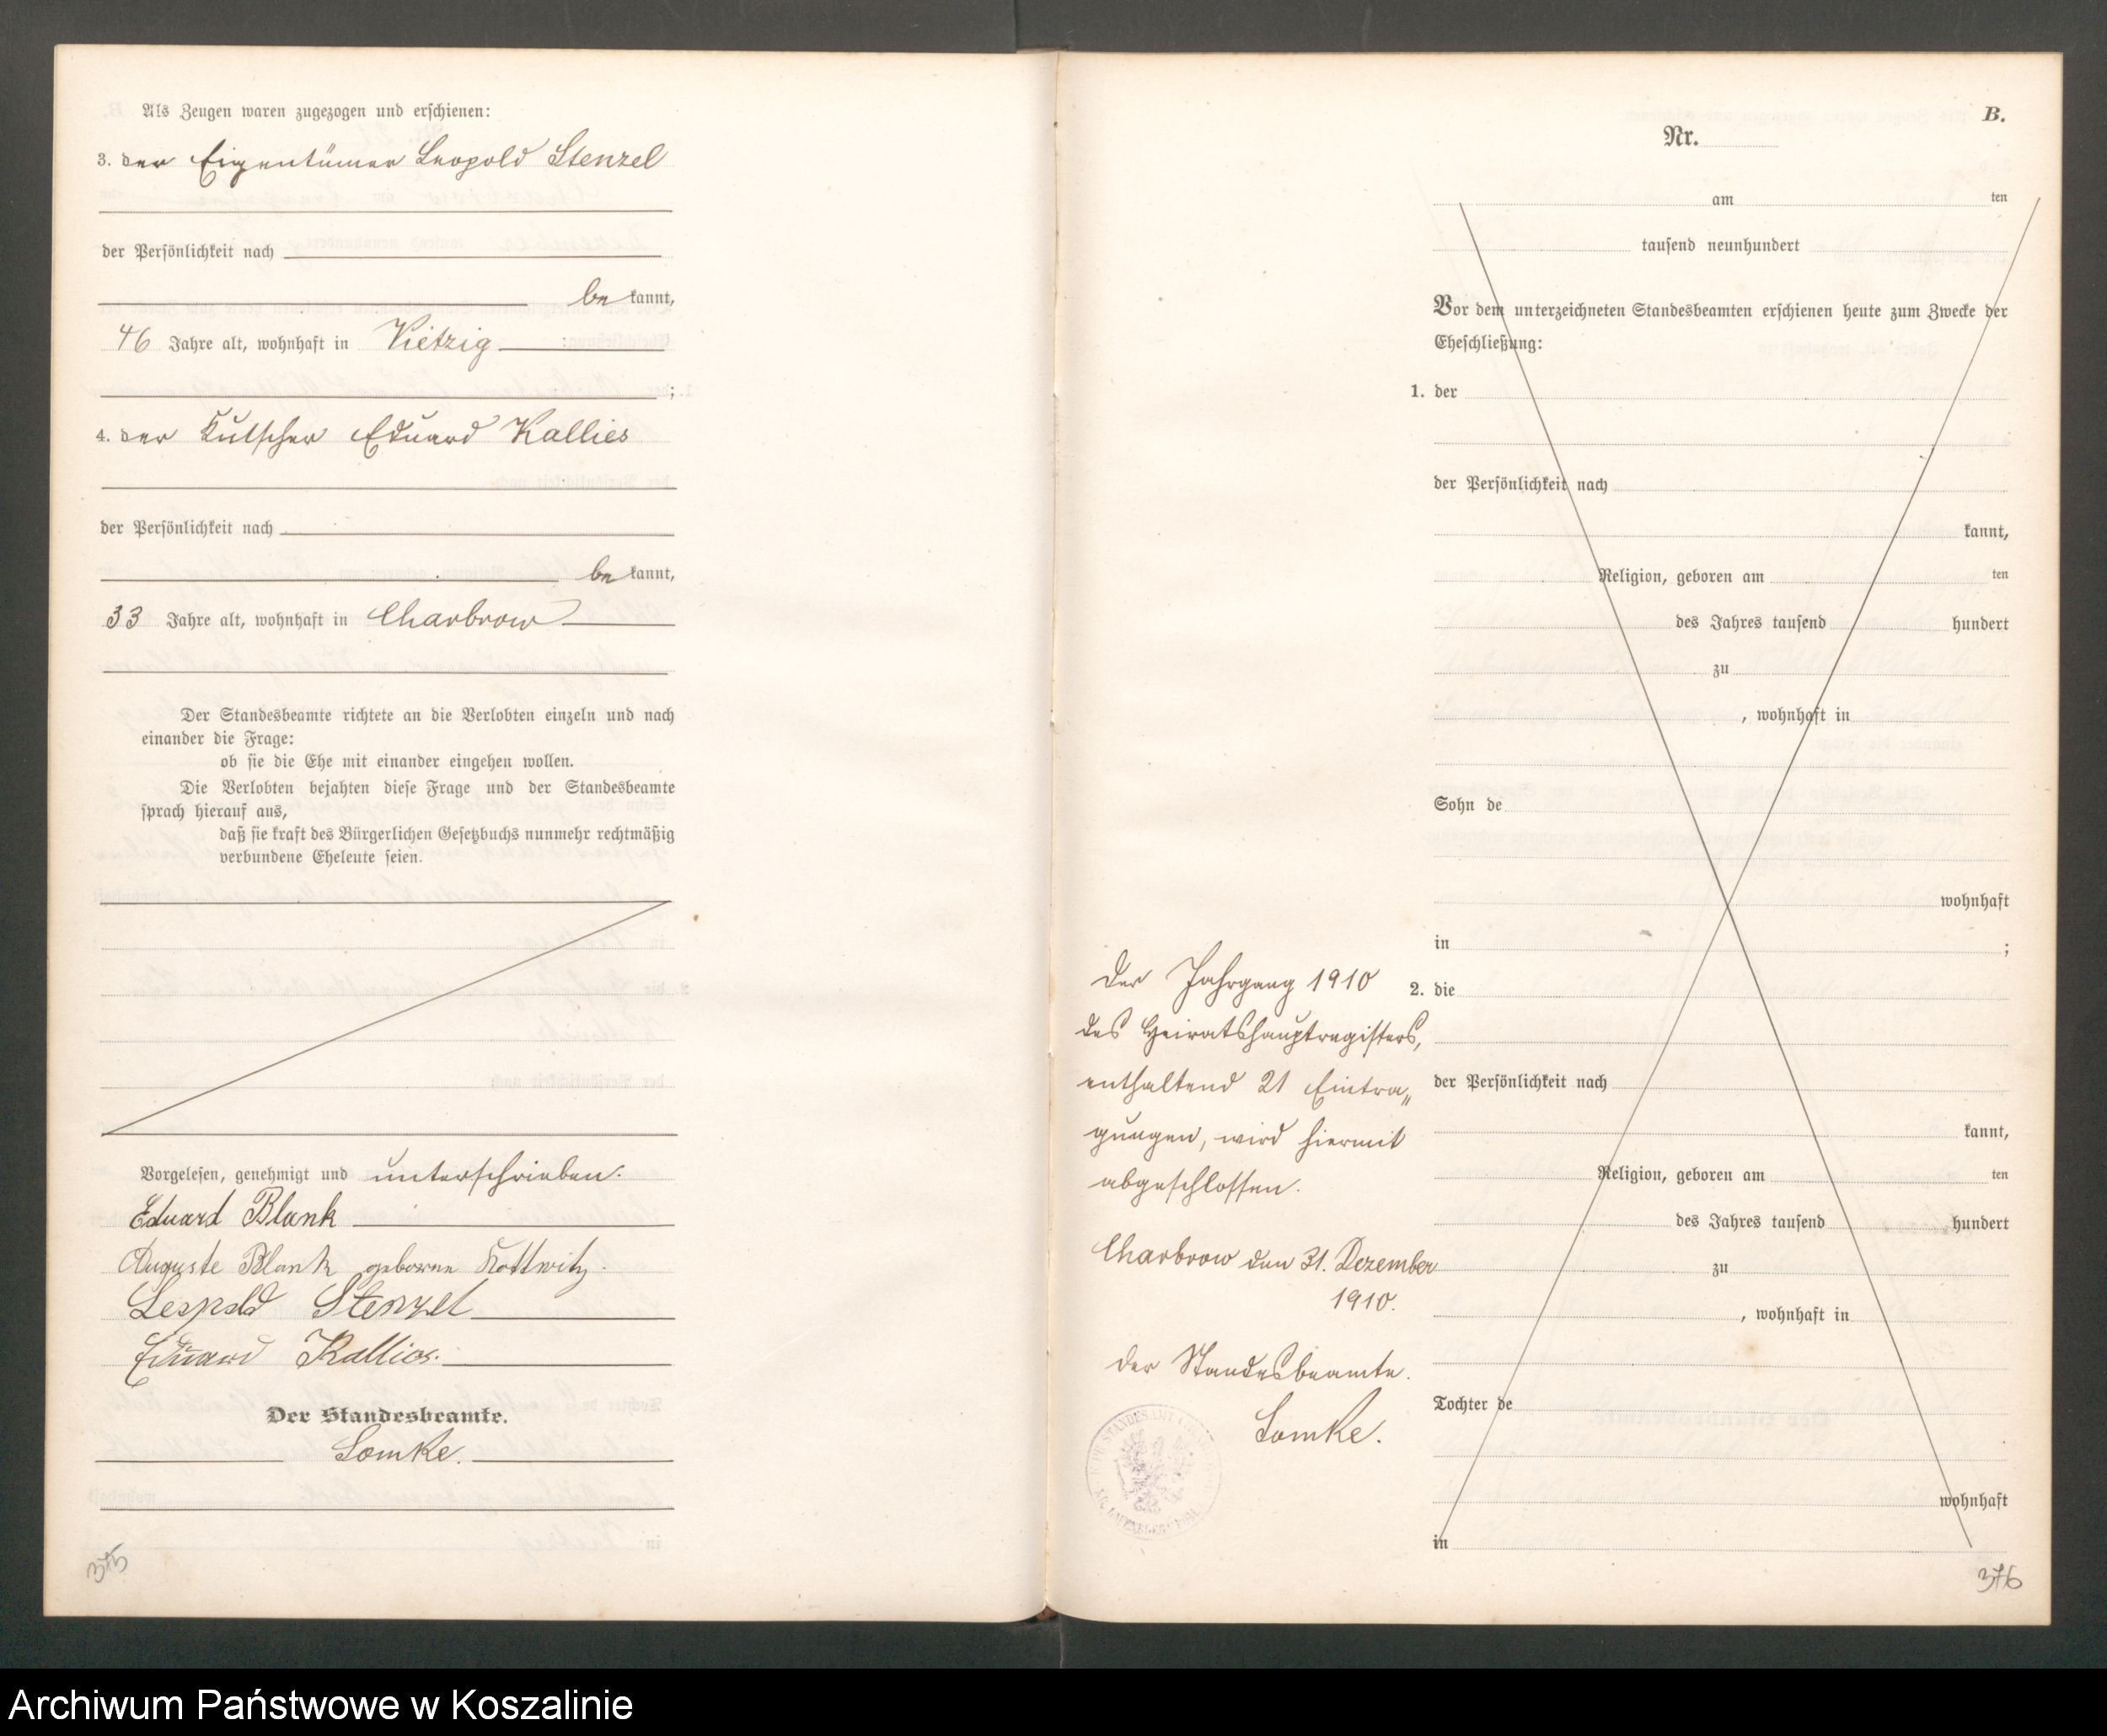 Als Zeugen waren zugezogen und erschienen:
3. der Eigentümer Leopold Stenzel
der Persönlichkeit nach
be kannt,
46 Jahre alt, wohnhaft in Vietzig
;
4. der Kutscher Eduard Kallies
der Persönlichkeit nach
be kannt,
33 Jahre alt, wohnhaft in Charbrow
Der Standesbeamte richtete an die Verlobten einzeln und nach
einander die Frage:
ob sie die Ehe mit einander eingehen wollen.
Die Verlobten bejahten diese Frage und der Standesbeamte
sprach hierauf aus,
daß sie kraft des Bürgerlichen Gesetzbuchs nunmehr rechtmäßig
verbundene Eheleute seien.
Vorgelesen, genehmigt und unterschrieben.
Eduard Blank
Auguste Blank geborene Kottwitz.
Leopold Stenzel
Eduard Kallies.
Der Standesbeamte.
Lomke.
375
B.
Nr.
am ten
tausend neunhundert
Vor dem unterzeichneten Standesbeamten erschienen heute zum Zwecke der
Eheschließung:
1. der
der Persönlichkeit nach
kannt,
Religion, geboren am ten
des Jahres tausend hundert
zu
, wohnhaft in
Sohn de
wohnhaft
in ;
2. die
der Persönlichkeit nach
kannt,
Religion, geboren am ten
des Jahres tausend hundert
zu
, wohnhaft in
Tochter de
wohnhaft
in
Der Jahrgang 1910
des Heiratshauptregisters,
enthaltend 21 Eintra„
gungen, wird hiermit
abgeschlossen.
Charbrow den 31. Dezember
1910.
Der Standesbeamte.
Lomke.
376
Archiwum Państwowe w Koszalinie